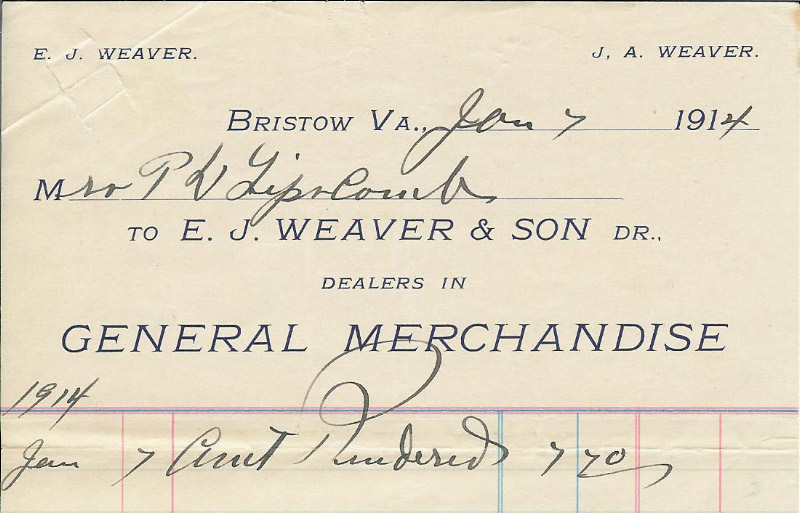 E. J. WEAVER. J. A. WEAVER.
BRISTOW VA., Jan 7 1914
Mrs P D Lipscomb
TO E. J. WEAVER & SON DR.,
DEALERS IN
GENERAL MERCHANDISE
1914
Jan 7 Amt Rendered 7 70